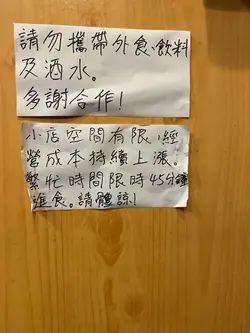 請勿攜帶外食、飲料
及酒水。
多謝合作!
小店空間有限,經
營成本持續上漲。
繁忙時間限時45分鐘
進食。請體諒!